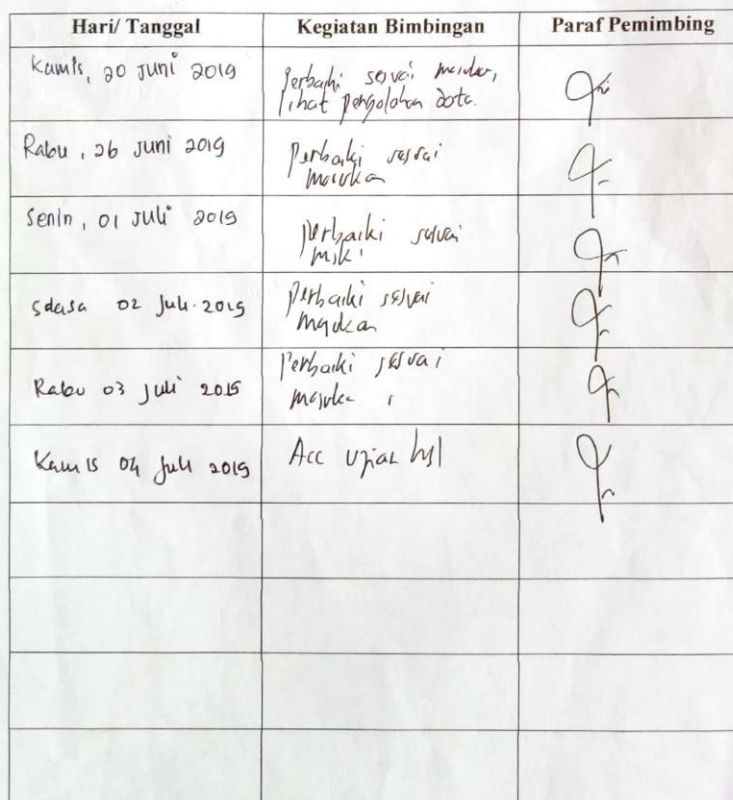 Hari/ Tanggal Kegiatan Bimbingan Paraf Pemimbing
Kamis, 20 Juni 2019 Perbaiki sesuai
lihat pengolahan data.
Rabu, 26 Juni 2019 Perbaiki sesuai
masukan
Senin, 01 Juli 2019 perbaiki sesuai
Selasa 02 Juli 2019 Perbaiki sesuai
masukan
Rabu 03 Juli 2019 Perbaiki sesuai
Kamis 04 Juli 2019 Acc ujian hsl